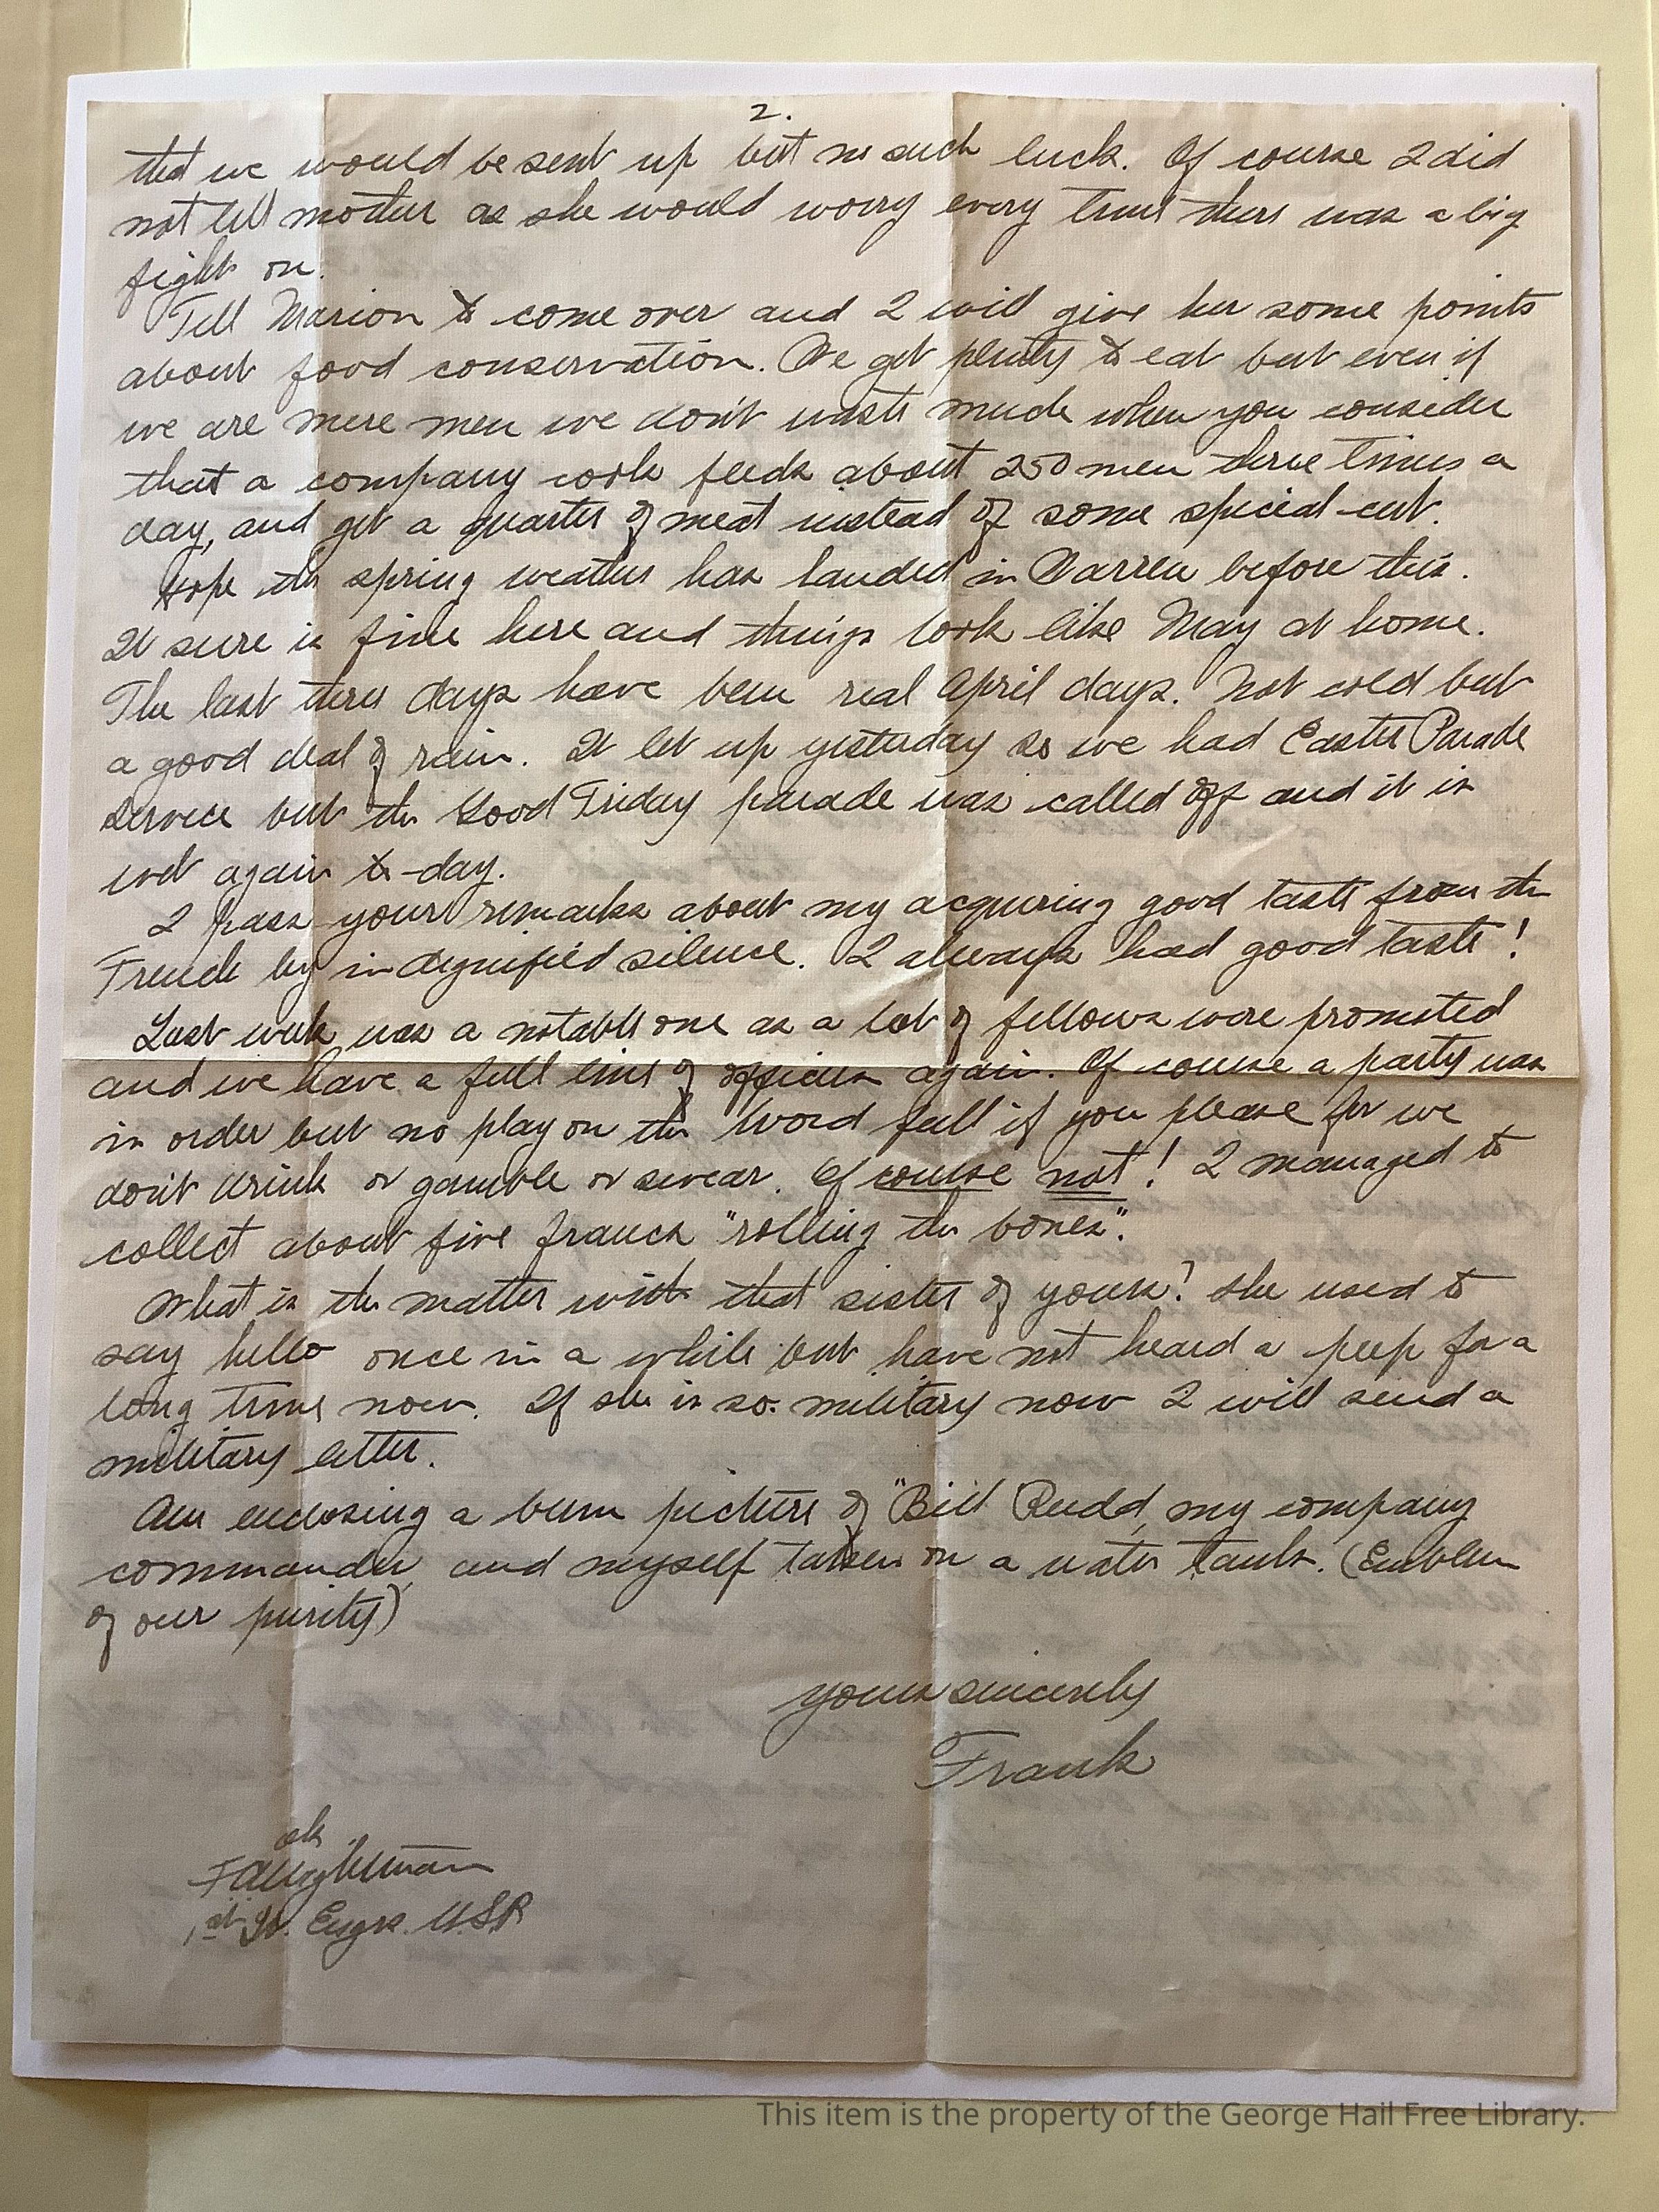 2.
that we would be sent up but no such luck. Of course I did
not tell mother as she would worry every time there was a big
fight on.
Tell Marion to come over and I will give her some points
about food conservation. We get plenty to eat but even if
we are mere men we don't waste much when you consider
that a company cook feeds about 250 men three times a
day, and get a quarter of meat instead of some special cut.
Hope the spring weather has landed in Warren before this.
It sure is fine here and things look like May at home.
The last three days have been real April days. Not cold but
a good deal of rain. It let up yesterday so we had Easter Parade
Service but the Good Friday parade was called off and it is
wet again to-day.
I pass your remarks about my acquiring good taste from the
French by in dignified silence. I always had good taste!
Last week was a notable one as a lot of fellows were promoted
and we have a full line of officers again. Of course a party was
in order but no play on the word full if you please for we
don't drink or gamble or swear. Of course not! I managed to
collect about five francs "rolling the bones".
What is the matter with that sister of yours? She used to
say hello once in a while but have not heard a peep for a
long time now. If she is so military now I will send a
military letter.
Am enclosing a bum picture of "Bill Rudd, my company
commander, and myself taken on a water tank. (Emblem
of our purity)
Yours sincerely
Frank
ok
1st Lt. Engrs. U.S.R
This item is the property of the George Hail Free Library.